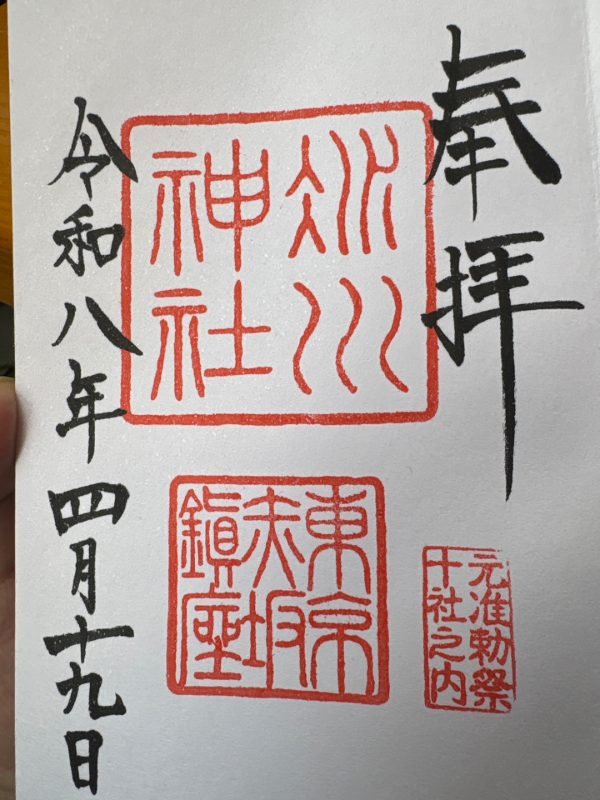 奉拝
氷川
神社
東京
赤坂
鎮座
元准勅祭
十社之内
令和八年四月十九日